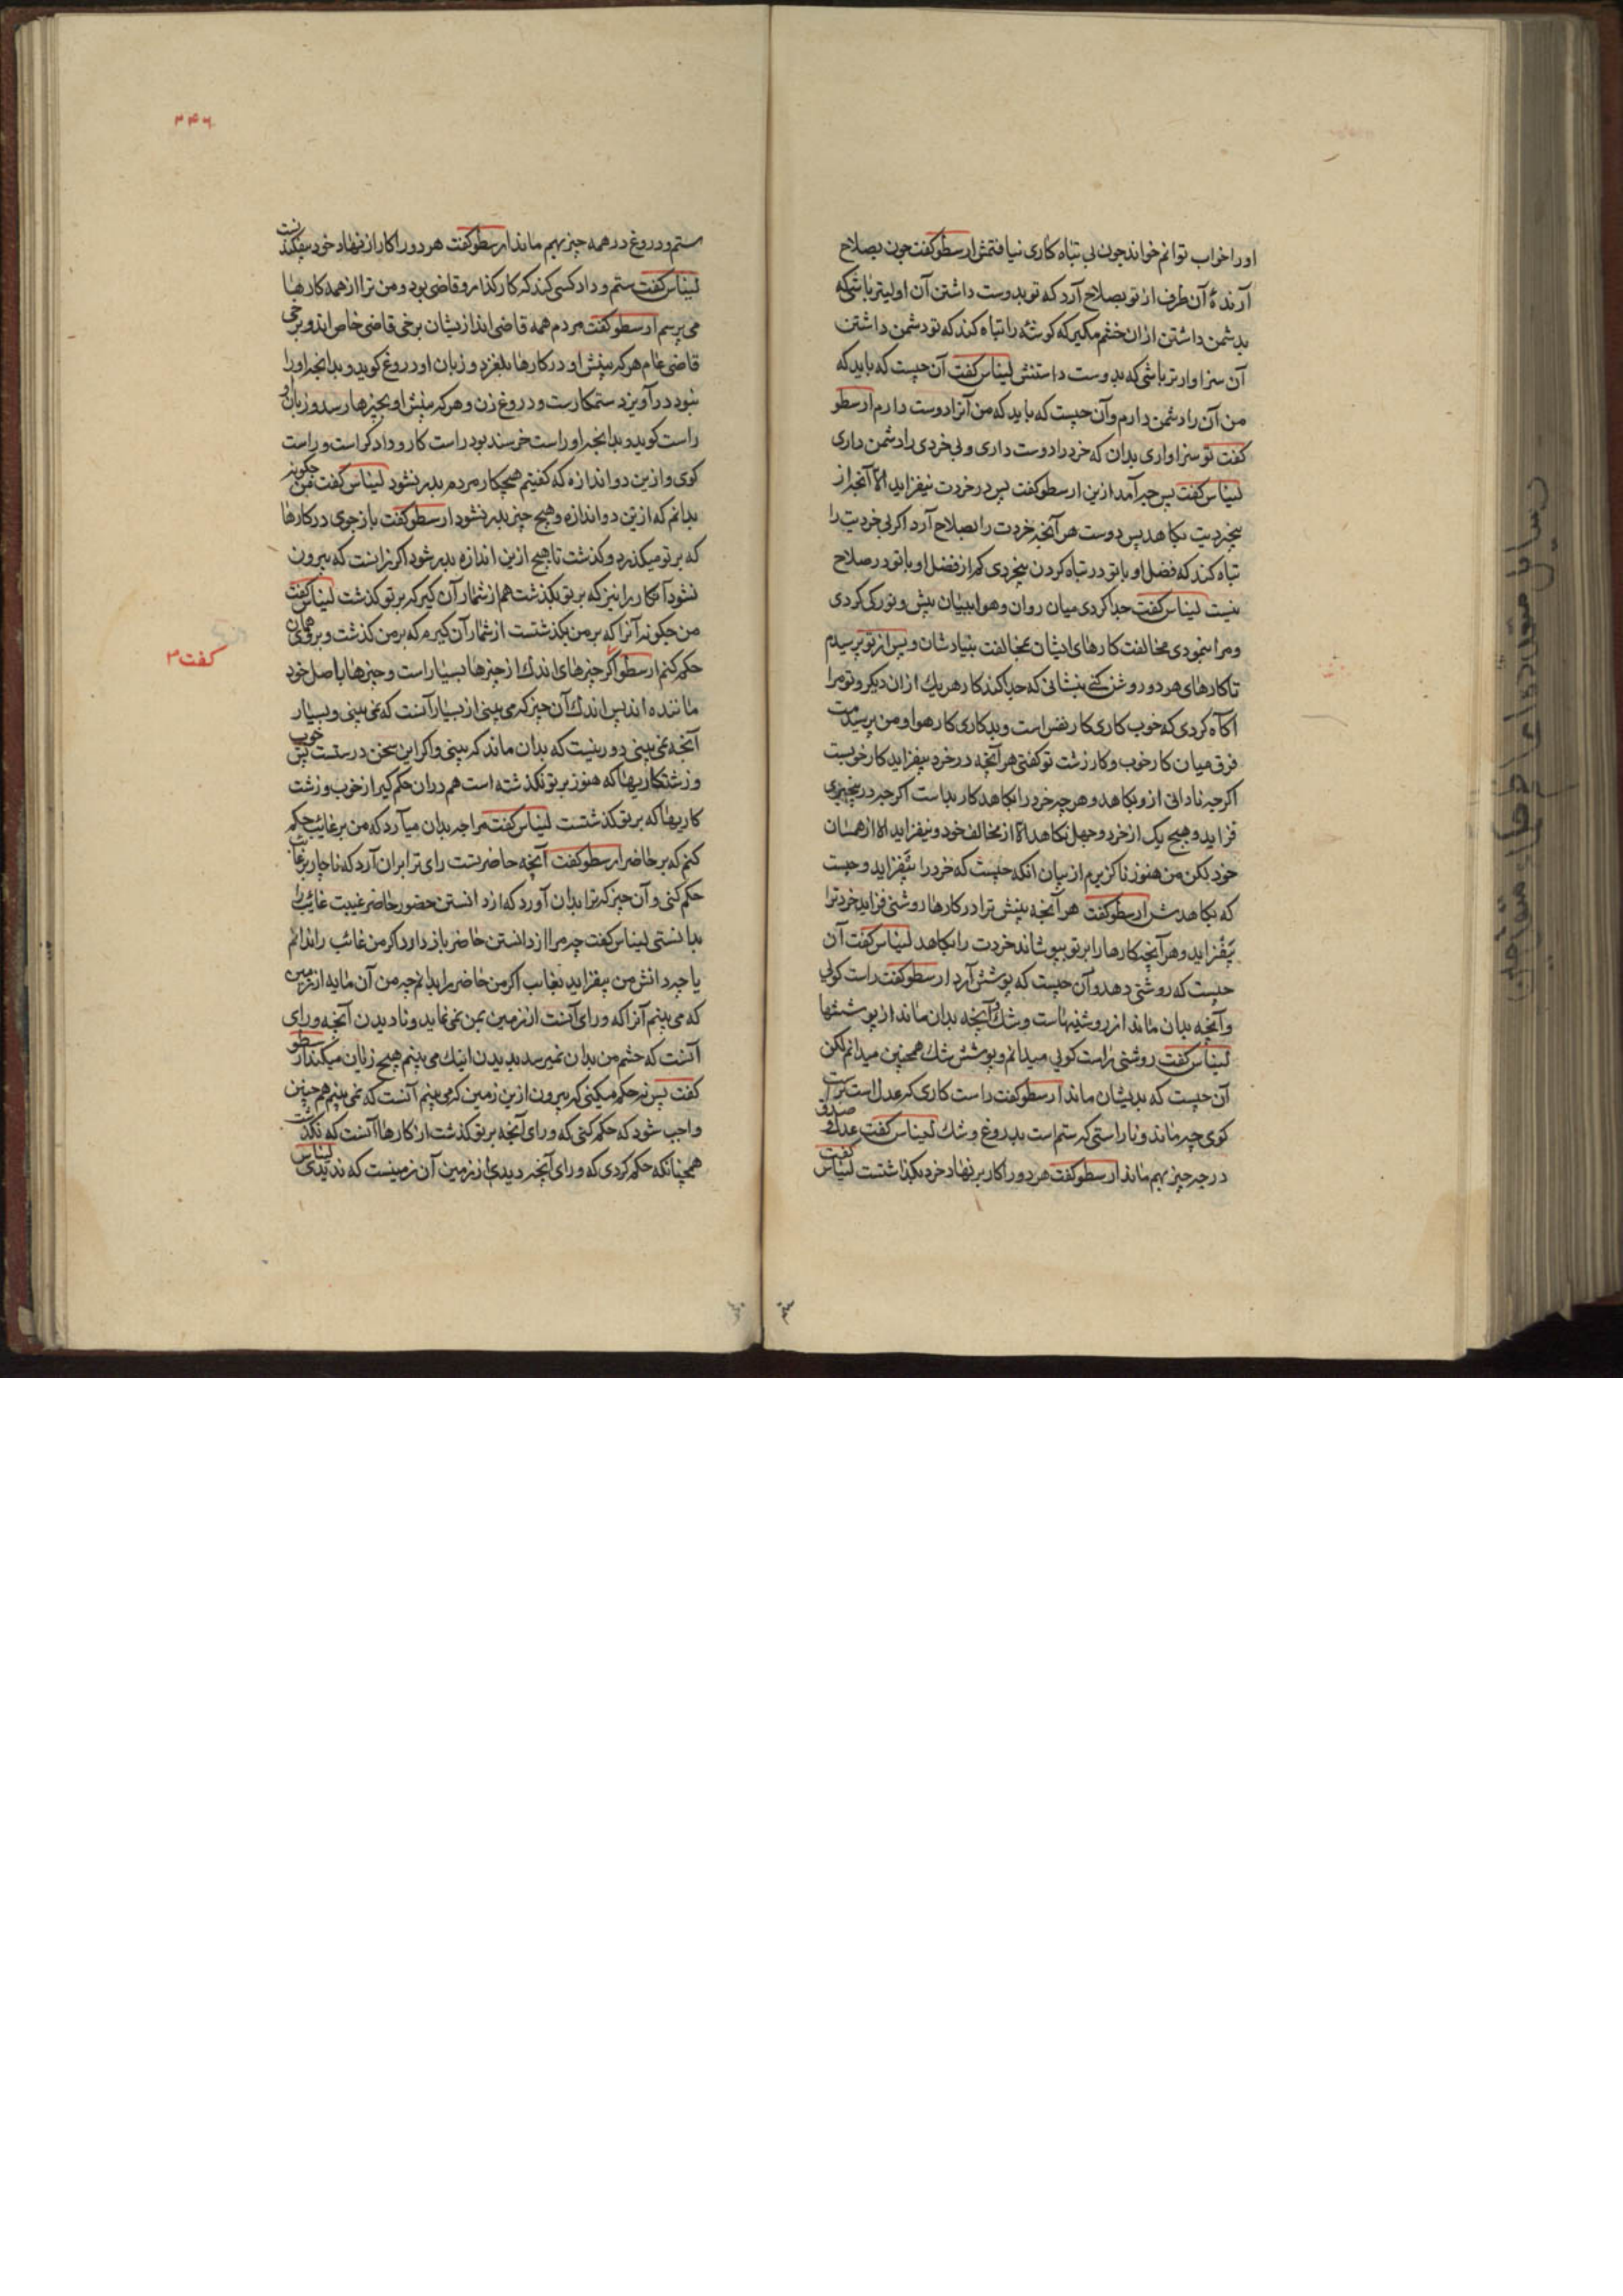 او را خواب توانم خواند چون بی تباه کاری نیافتمش ارسطو گفت چون بصلاح
آرندهٔ آن طرف از تو بصلاح آرد که تو بدوست داشتن آن اولیتر باشی که
بدشمن داشتن ازان خشم مکیر که گوشهٔ را تباه کند که تو دشمن داشتن
آن سزاوارتر باشی که بدوست داشتنش لیناس کفت آن چیست که باید که
من آن را دشمن دارم و آن چیست که باید که من آنرا دوست دارم ارسطو
کفت تو سزاواری بدان که خرد را دوست داری و بی خردی را دشمن داری
لیناس کفت پس چه آمد ازین ارسطو کفت پس در خردت نیفزاید الا آنچه از
بیخردیت بکاهد پس دوست هر آنچه خردت را بصلاح آرد اکر بی خردیت را
تباه کند که فضل او با تو در تباه کردن بیخردی کم از فضل او با تو در صلاح
نیست لیناس کفت جدا کردی میان روان و هوا ببیان پیش و تو رکی کردی
و مرا بنمودی مخالفت کارهای ایشان بمخالفت بنیادشان و پس از تو پرسیدم
تا کارهای هر دو روشن کنی بنشانی که جدا کند کار هر یک از ان دیکر و تو مرا
آکاه کردی که خوب کاری کار نفس است و بد کاری کار هوا و من پرسیدمت
فرق میان کار خوب و کار زشت تو کفتی هر آنچه در خرد بیفزاید کار خوبست
اکرچه نادانی از و بکاهد و هر چه خرد را بکاهد کار بد است اکرچه در بیخردی
فزاید و هیچ یک از خرد و جهل نکاهد الا از مخالف خود و نیفزاید الا از همسان
خود لکن من هنوز ناگزیرم از بیان آنکه چیست که خرد را بیفزاید و چیست
که بکاهدش ارسطو کفت هر آنچه بینش ترا در کارها روشنی فزاید خرد ترا
بیفزاید و هر آنچه کارها را بر تو بپوشاند خردت را بکاهد لیناس کفت آن
چیست که روشنی دهد و آن چیست که پوشش آرد ارسطو کفت راست کوئی
و آنچه بدان ماند از روشنیهاست و شک و آنچه بدان ماند از پوششها
لیناس کفت روشنی راست کویی میدانم و پوشش شک همچنین میدانم لکن
آن چیست که بدیشان ماند ارسطو کفت راست کاری که عدل است براست
کوی چه ماند و ناراستی که ستم است بدروغ و شک لیناس کفت عدل و صدق
در چه چیز بهم ماند ارسطو کفت هر دو را کار بر نهاد خرد بگذاشتست لیناس کفت
۲۴۶
ستم و دروغ در همه چیز بهم ماند ارسطو کفت هر دو را کار از نهاد خود بیفکندنست
لیناس کفت ستم و داد کسی کند که کارکذار و قاضی بود و من ترا از همه کارها
می پرسم ارسطو کفت مردم همه قاضی اند از یشان برخی قاضی خاص اند و برخی
قاضی عام هر که بینش او در کارها بلغزد و زبان او دروغ کوید و بدانچه او را
نبود در آویزد ستمکارست و دروغ زن و هر که بینش او بچیزها رسد و زبان او
راست کوید و بدانچه او راست خرسند بود راست کار و دادگر است و راست
کوی و ازین دو اندازه که کفتیم هیچ کار مردم بدر نشود لیناس کفت من چکونه
بدانم که ازین دو اندازه و هیچ چیز بدر نشود ارسطو کفت باز جوی در کارها
که بر تو میکذرد و کذشت تا هیچ ازین اندازه بدر شود اکر نه انست که بیرون
نشود آن کار را نیز که بر تو نکذشت هم از شمار آن کیر که بر تو کذشت لیناس کفت
من چکونه آنرا که بر من نکذشتست از شمار آن کیرم که بر من کذشت و بر وی همان
حکم کنم ارسطو اگر چیزهای اندک از چیزها بسیار است و چیزها باصل خود
کفت ۳
ماننده اند پس اندک آن چیز که می بینی از بسیار آنست که نمی بینی و بسیار
آنچه نمی بینی دور نیست که بدان ماند که بینی و اکر این سخن درستست پس خوب
و زشت کاریها که هنوز بر تو نکذشته است هم در ان حکم کیر از خوب و زشت
کاریها که بر تو کذشتست لیناس کفت مرا چه بدان میآرد که من بر غائب حکم
کنم که بر حاضر ارسطو کفت آنچه حاضر تست رای ترا بران آرد که ناچار بر غائب
حکم کنی و آن چیز که ترا بدان آورد که از دانستن حضور حاضر غیبت غائب را
بدانستی لیناس کفت چه مرا از دانستن حاضر باز دارد اکر من غائب را ندانم
یا چه دانش من بیفزاید بغایب اکر من حاضر را بدانم چه من آن مایه از زمین
که می بینم آنرا که ورای آنست از زمین بمن نمی نماید و نادیدن آنچه ورای
آنست که چشم من بدان نمیرسد بدیدن اینک می بینم هیچ زیان میکند ارسطو
کفت پس نه حکم میکنی که بیرون ازین زمین که می بینم آنست که نمی بینم هم چنین
واجب شود که حکم کنی که ورای آنچه بر تو کذشت از کارها آنست که نکذشت
همچنانکه حکم کردی که ورای آنچه دیدی از زمین آن زمینست که ندیدی لیناس